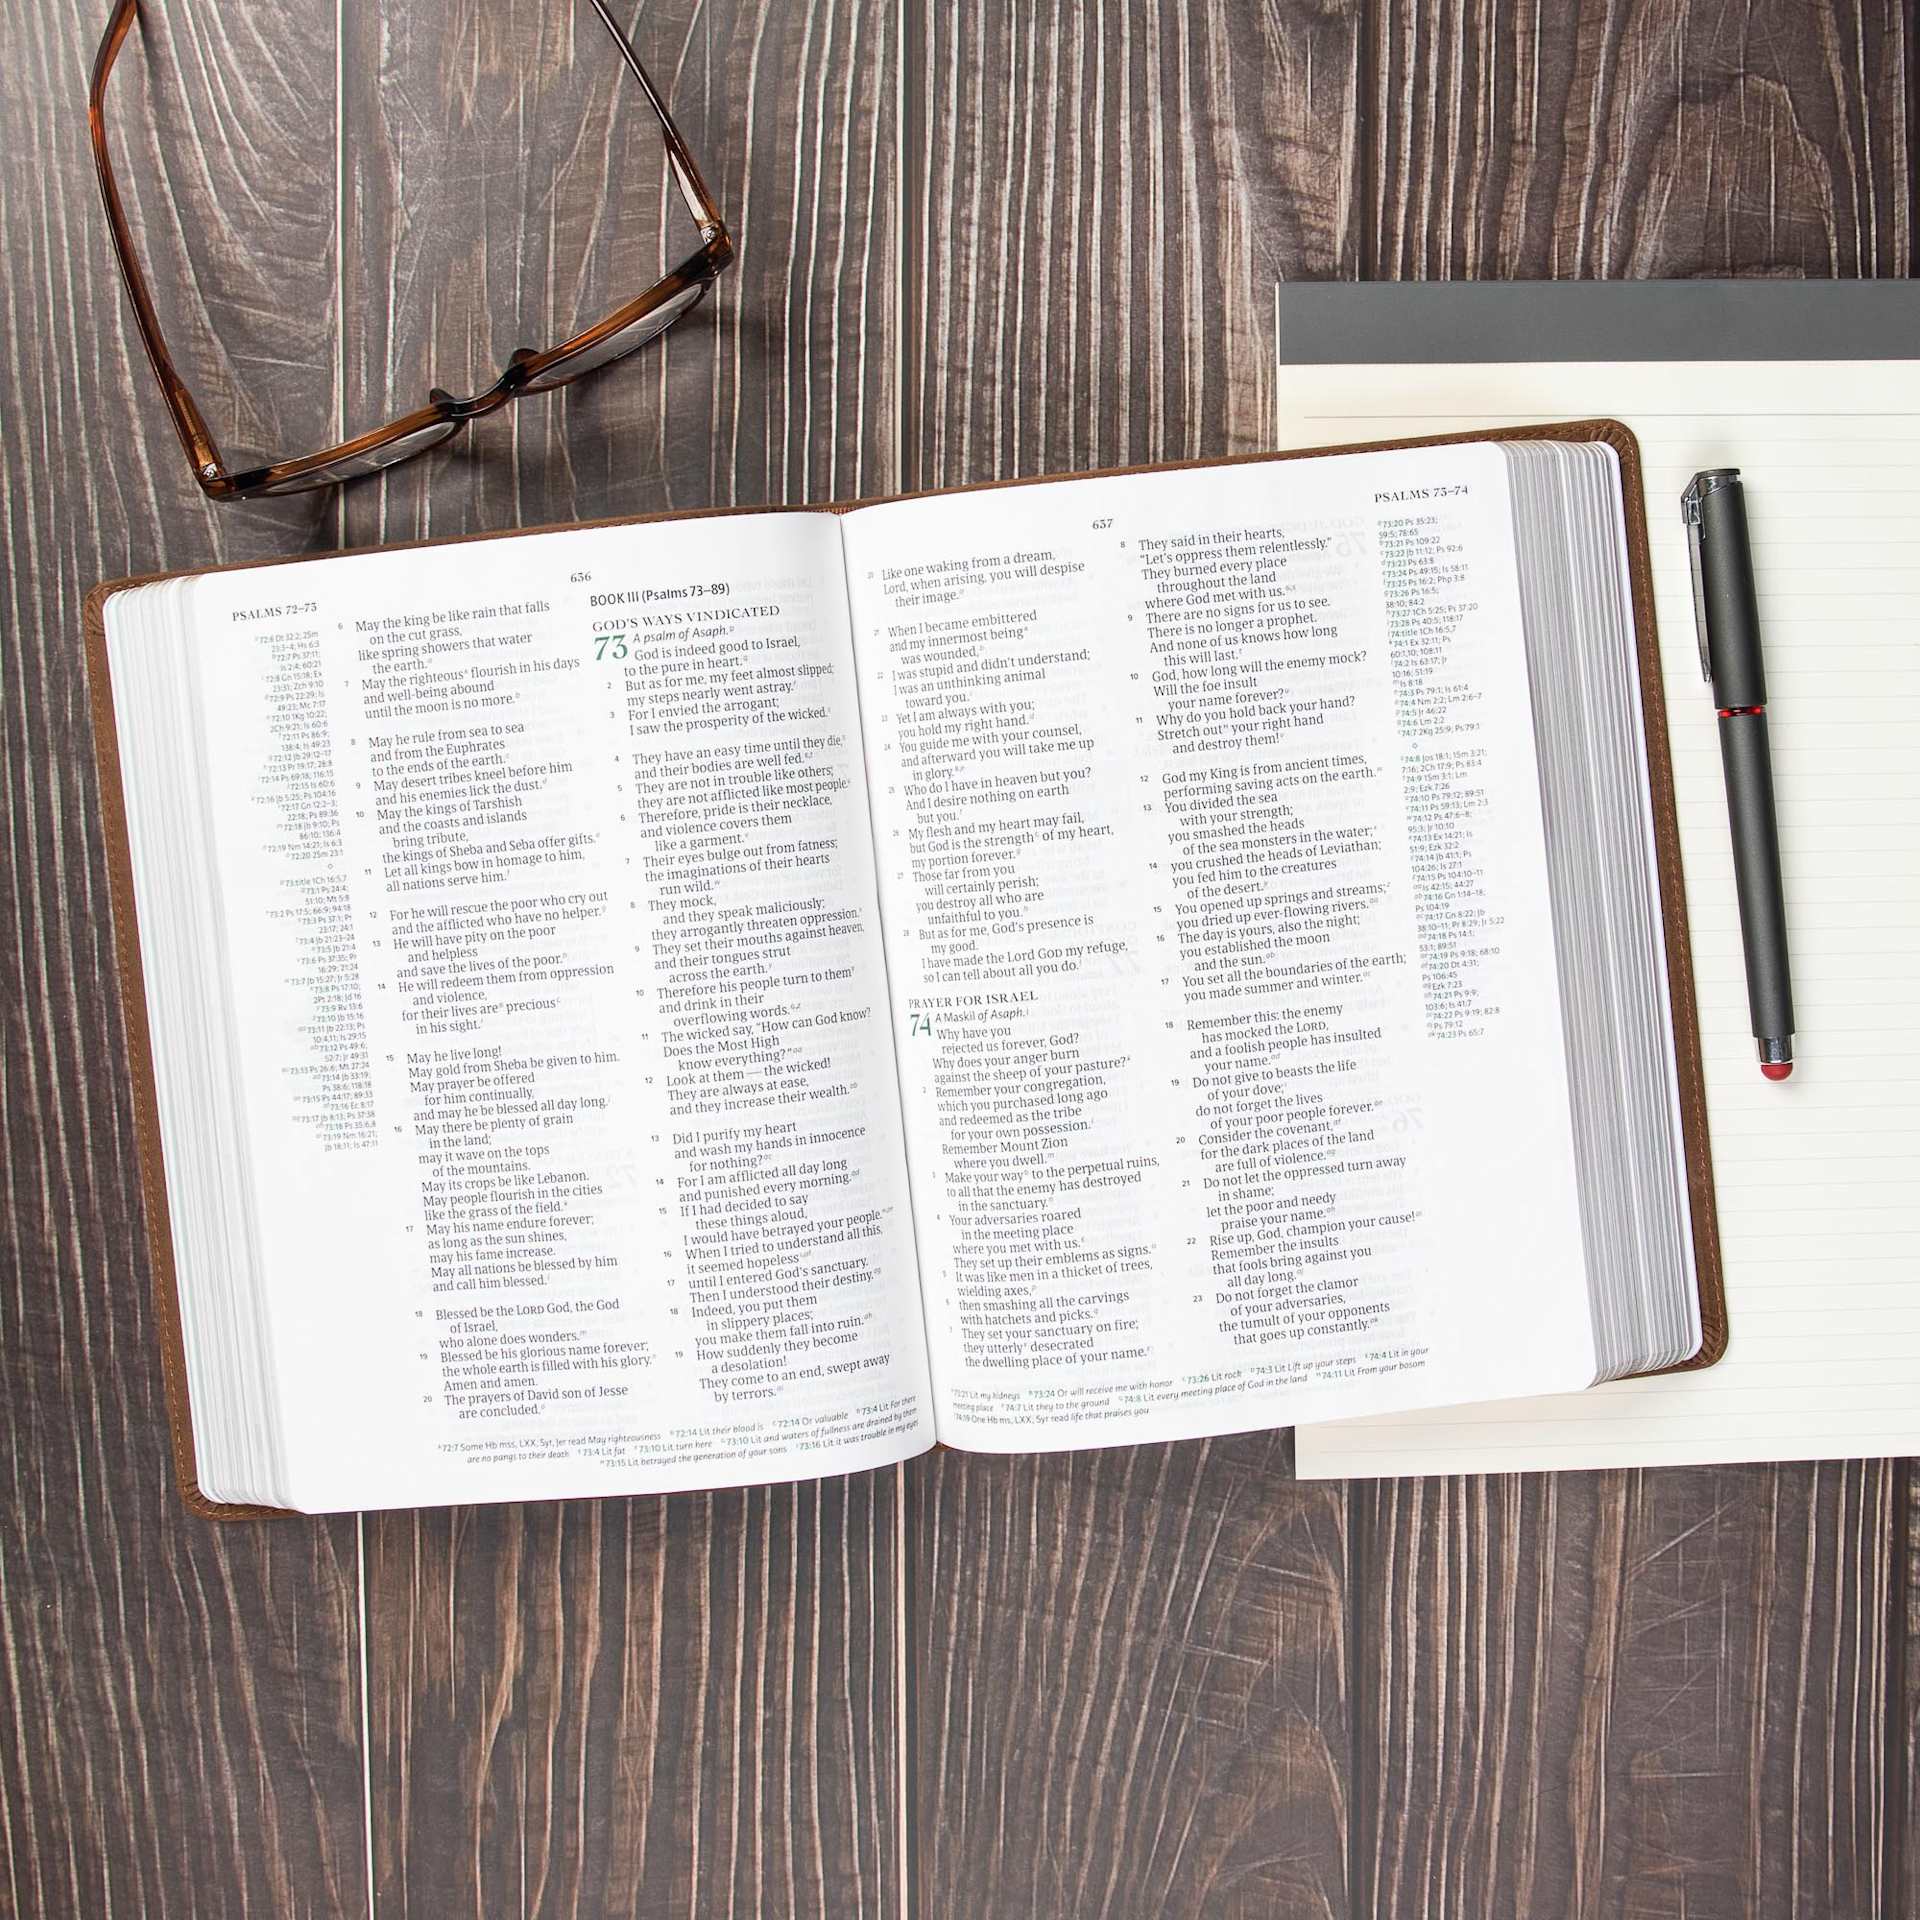 636
PSALMS 72–73
6 May the king be like rain that falls
on the cut grass,
like spring showers that water
the earth.
7 May the righteous flourish in his days
and well-being abound
until the moon is no more.
8 May he rule from sea to sea
and from the Euphrates
to the ends of the earth.
9 May desert tribes kneel before him
and his enemies lick the dust.
10 May the kings of Tarshish
and the coasts and islands
bring tribute,
the kings of Sheba and Seba offer gifts.
11 Let all kings bow in homage to him,
all nations serve him.
12 For he will rescue the poor who cry out
and the afflicted who have no helper.
13 He will have pity on the poor
and helpless
and save the lives of the poor.
14 He will redeem them from oppression
and violence,
for their lives are precious
in his sight.
15 May he live long!
May gold from Sheba be given to him.
May prayer be offered
for him continually,
and may he be blessed all day long.
16 May there be plenty of grain
in the land;
may it wave on the tops
of the mountains.
May its crops be like Lebanon.
May people flourish in the cities
like the grass of the field.
17 May his name endure forever;
as long as the sun shines,
may his fame increase.
May all nations be blessed by him
and call him blessed.
18 Blessed be the LORD God, the God
of Israel,
who alone does wonders.
19 Blessed be his glorious name forever;
the whole earth is filled with his glory.
Amen and amen.
20 The prayers of David son of Jesse
are concluded.
BOOK III (Psalms 73–89)
GOD'S WAYS VINDICATED
73 A psalm of Asaph.
God is indeed good to Israel,
to the pure in heart.
2 But as for me, my feet almost slipped;
my steps nearly went astray.
3 For I envied the arrogant;
I saw the prosperity of the wicked.
4 They have an easy time until they die,
and their bodies are well fed.
5 They are not in trouble like others;
they are not afflicted like most people.
6 Therefore, pride is their necklace,
and violence covers them
like a garment.
7 Their eyes bulge out from fatness;
the imaginations of their hearts
run wild.
8 They mock,
and they speak maliciously;
they arrogantly threaten oppression.
9 They set their mouths against heaven,
and their tongues strut
across the earth.
10 Therefore his people turn to them
and drink in their
overflowing words.
11 The wicked say, "How can God know?
Does the Most High
know everything?"
12 Look at them — the wicked!
They are always at ease,
and they increase their wealth.
13 Did I purify my heart
and wash my hands in innocence
for nothing?
14 For I am afflicted all day long
and punished every morning.
15 If I had decided to say
these things aloud,
I would have betrayed your people.
16 When I tried to understand all this,
it seemed hopeless
17 until I entered God's sanctuary.
Then I understood their destiny.
18 Indeed, you put them
in slippery places;
you make them fall into ruin.
19 How suddenly they become
a desolation!
They come to an end, swept away
by terrors.
72:7 Some Hb mss, LXX, Syr, Jer read May righteousness 72:14 Lit their blood is 72:14 Or valuable 73:4 Lit For there
are no pangs to their death 73:4 Lit fat 73:10 Lit turn here 73:10 Lit and waters of fullness are drained by them
73:15 Lit betrayed the generation of your sons 73:16 Lit it was trouble in my eyes
637
PSALMS 73–74
Like one waking from a dream,
Lord, when arising, you will despise
their image.
21 When I became embittered
and my innermost being
was wounded,
22 I was stupid and didn't understand;
I was an unthinking animal
toward you.
23 Yet I am always with you;
you hold my right hand.
24 You guide me with your counsel,
and afterward you will take me up
in glory.
25 Who do I have in heaven but you?
And I desire nothing on earth
but you.
26 My flesh and my heart may fail,
but God is the strength of my heart,
my portion forever.
27 Those far from you
will certainly perish;
you destroy all who are
unfaithful to you.
28 But as for me, God's presence is
my good.
I have made the Lord GOD my refuge,
so I can tell about all you do.
PRAYER FOR ISRAEL
74 A Maskil of Asaph.
Why have you
rejected us forever, God?
Why does your anger burn
against the sheep of your pasture?
2 Remember your congregation,
which you purchased long ago
and redeemed as the tribe
for your own possession.
Remember Mount Zion
where you dwell.
3 Make your way to the perpetual ruins,
to all that the enemy has destroyed
in the sanctuary.
4 Your adversaries roared
in the meeting place
where you met with us.
They set up their emblems as signs.
5 It was like men in a thicket of trees,
wielding axes,
6 then smashing all the carvings
with hatchets and picks.
7 They set your sanctuary on fire;
they utterly desecrated
the dwelling place of your name.
8 They said in their hearts,
"Let's oppress them relentlessly."
They burned every place
throughout the land
where God met with us.
9 There are no signs for us to see.
There is no longer a prophet.
And none of us knows how long
this will last.
10 God, how long will the enemy mock?
Will the foe insult
your name forever?
11 Why do you hold back your hand?
Stretch out your right hand
and destroy them!
12 God my King is from ancient times,
performing saving acts on the earth.
13 You divided the sea
with your strength;
you smashed the heads
of the sea monsters in the water;
14 you crushed the heads of Leviathan;
you fed him to the creatures
of the desert.
15 You opened up springs and streams;
you dried up ever-flowing rivers.
16 The day is yours, also the night;
you established the moon
and the sun.
17 You set all the boundaries of the earth;
you made summer and winter.
18 Remember this: the enemy
has mocked the LORD,
and a foolish people has insulted
your name.
19 Do not give to beasts the life
of your dove;
do not forget the lives
of your poor people forever.
20 Consider the covenant,
for the dark places of the land
are full of violence.
21 Do not let the oppressed turn away
in shame;
let the poor and needy
praise your name.
22 Rise up, God, champion your cause!
Remember the insults
that fools bring against you
all day long.
23 Do not forget the clamor
of your adversaries,
the tumult of your opponents
that goes up constantly.
73:21 Lit my kidneys 73:24 Or will receive me with honor 73:26 Lit rock 74:3 Lit Lift up your steps 74:4 Lit in your
meeting place 74:7 Lit they to the ground 74:8 Lit every meeting place of God in the land 74:11 Lit From your bosom
74:19 One Hb ms, LXX, Syr read life that praises you